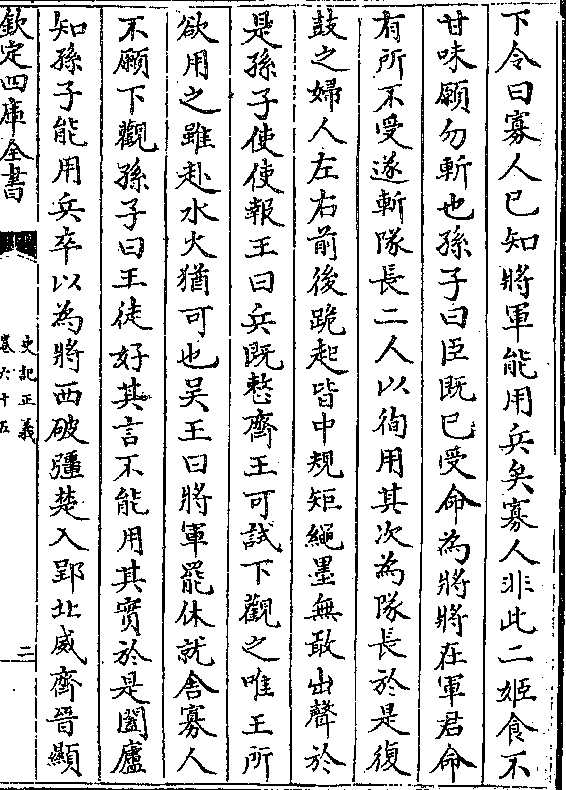 下令曰寡人已知將軍能用兵矣寡人非此二姬食不
甘味願勿斬也孫子曰臣既已受命為將將在軍君命
有所不受遂斬隊長二人以徇用其次為隊長於是復
鼓之婦人左右前後跪起皆中規矩繩墨無敢出聲於
是孫子使使報王曰兵既整齊王可試下觀之唯王所
欲用之雖赴水火猶可也吳王曰將軍罷休就舍寡人
不願下觀孫子曰王徒好其言不能用其實於是闔廬
知孫子能用兵卒以為將西破彊楚入郢北威齊晉顯
欽定四庫全書
史記正義
卷六十五
二